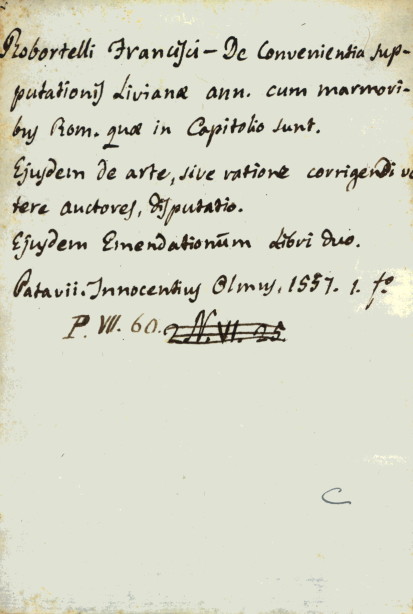 Robortelli Francisci – De Convenientia sup-
putationis Livianæ ann. cum marmori-
bus Rom. quæ in Capitolio sunt.
Ejusdem de arte, sive ratione corrigendi ve
tere auctores, disputatio.
Ejusdem Emendationum Libri duo.
Patavii. Innocentius Olmus. 1557. 1. fo.
P. VII. 60. 2. N. VI. 25.
C